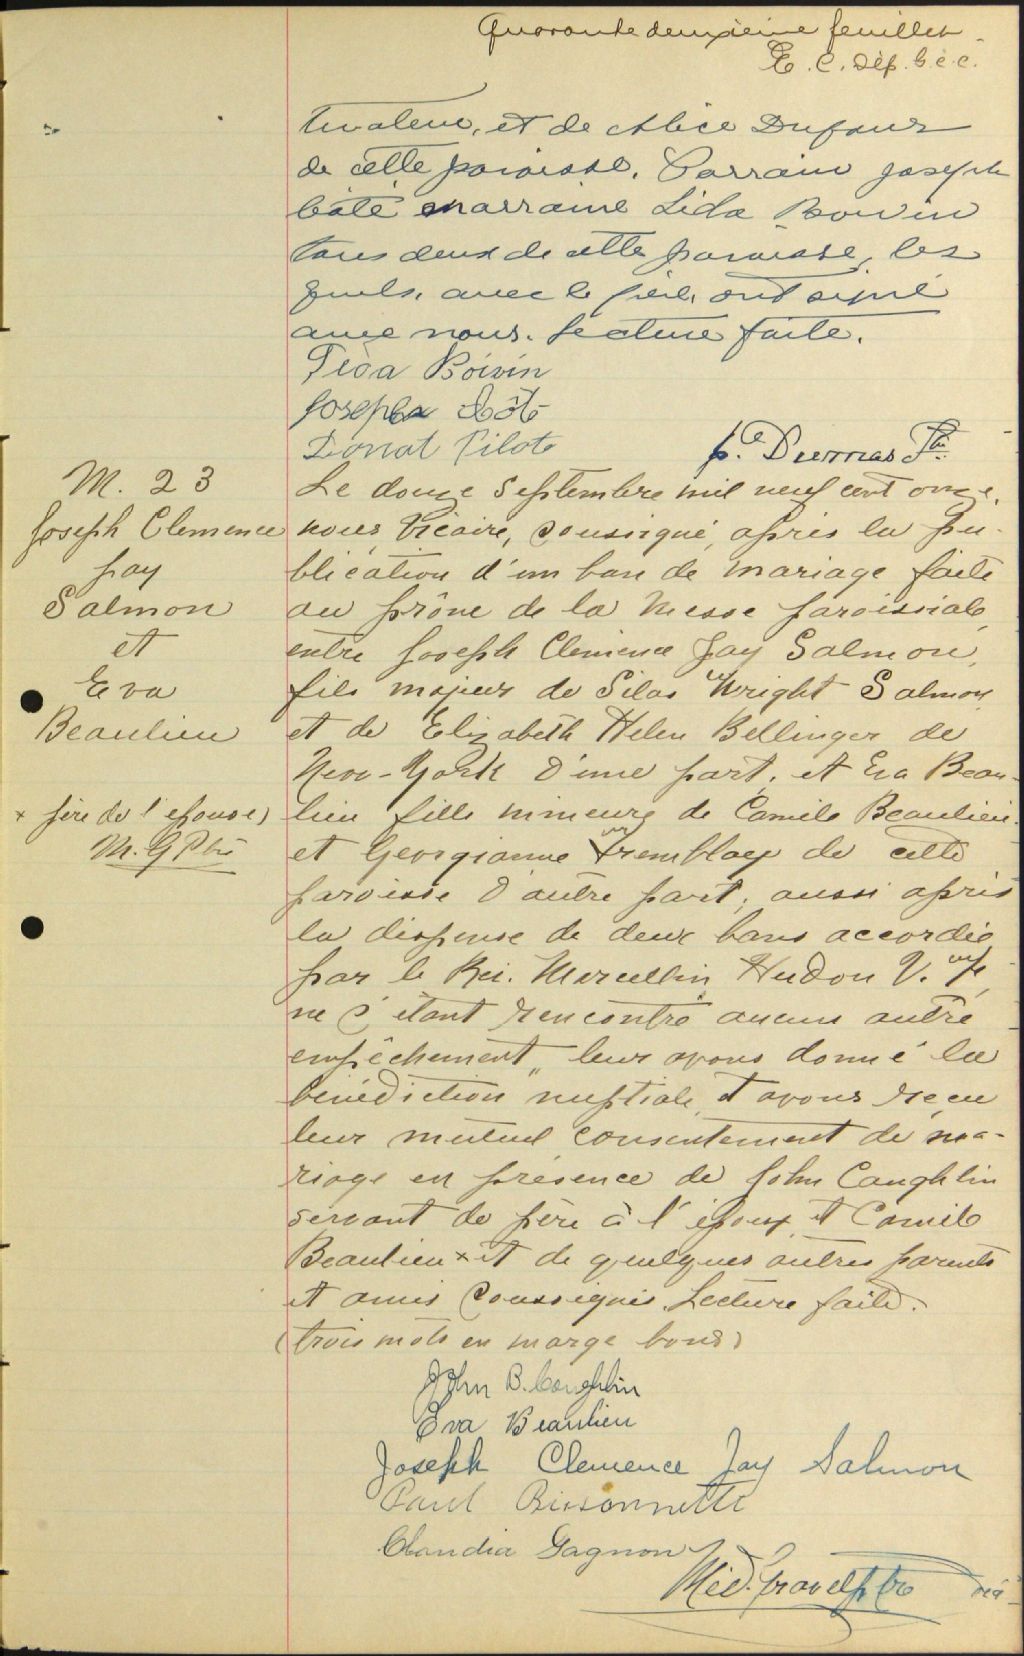 Quarante deuxième feuillet
E. C. Dép. G. C. C.
tivateur, et de Alice Dufour
de cette paroisse. Parrain Joseph
Côté marraine Lida Boivin
tous deux de cette paroisse, les
quels, avec le père, ont signé
avec nous. Lecture faite.
Boivin
Joseph Côté
Donat Pilote
Dumas Ptre
M. 23
Joseph Clemence
Jay
Salmon
et
Eva
Beaulieu
x père de l'épouse)
M. G Ptre
Le douze Septembre mil neuf cent onze,
nous Vicaire, soussigné, après la pu-
blication d'un ban de mariage faite
au prône de la Messe paroissiale,
entre Joseph Clemence Jay Salmon,
fils majeur de Silas Wright Salmon
et de Elizabeth Helen Bellinger de
New-York d'une part, et Eva Beau-
lieu fille mineure de Camile Beaulieu
et Georgianne Tremblay de cette
paroisse d'autre part; aussi après
la dispense de deux bans accordée
par le Rév. Marcellin Hudon V.
ne s'étant rencontré aucun autre
empêchement, leur avons donné la
bénédiction nuptiale, et avons reçu
leur mutuel consentement de ma-
riage en présence de John Caughlin
servant de père à l'époux et Camile
Beaulieu x et de quelques autres parents
et amis soussignés. Lecture faite.
(trois mots en marge bons)
John B. Coughlin
Eva Beaulieu
Joseph Clemence Jay Salmon
Paul Bissonnette
Claudia Gagnon
Méd. Gravel ptre